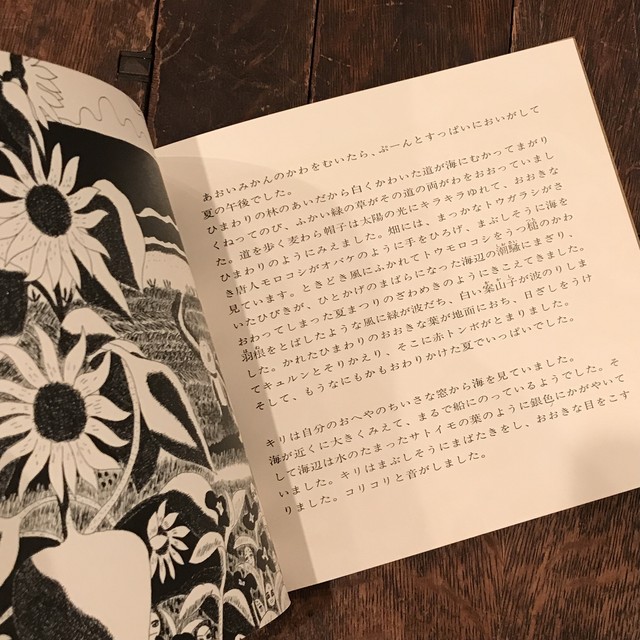 あおいみかんのかわをむいたら、ぷーんとすっぱいにおいがして
夏の午後でした。
ひまわりの林のあいだから白くかわいた道が海にむかってまがり
くねってのび、ふかい緑の草がその道の両がわをおおっていまし
た。道を歩く麦わら帽子は太陽の光にキラキラゆれて、おおきな
ひまわりのようにみえました。畑には、まっかなトウガラシがさ
き唐人モロコシがオバケのように手をひろげ、まぶしそうに海を
見ています。ときどき風にふかれてトウモロコシをうつ槌のかわ
いたひびきが、ひとかげのまばらになった海辺の潮騒にまぎり、
おわってしまった夏まつりのざわめきのようにきこえてきました。
羽根をとばしたような風に緑が波だち、白い案山子が波のりしま
した。かれたひまわりのおおきな葉が地面におち、日ざしをうけ
てキュルンとそりかえり、そこに赤トンボがとまりました。
そして、もうなにもかもおわりかけた夏でいっぱいでした。
キリは自分のおへやのちいさな窓から海を見ていました。
海が近くに大きくみえて、まるで船にのっているようでした。そ
して海辺は水のたまったサトイモの葉のように銀色にかがやいて
いました。キリはまぶしそうにまばたきをし、おおきな目をこす
りました。コリコリと音がしました。